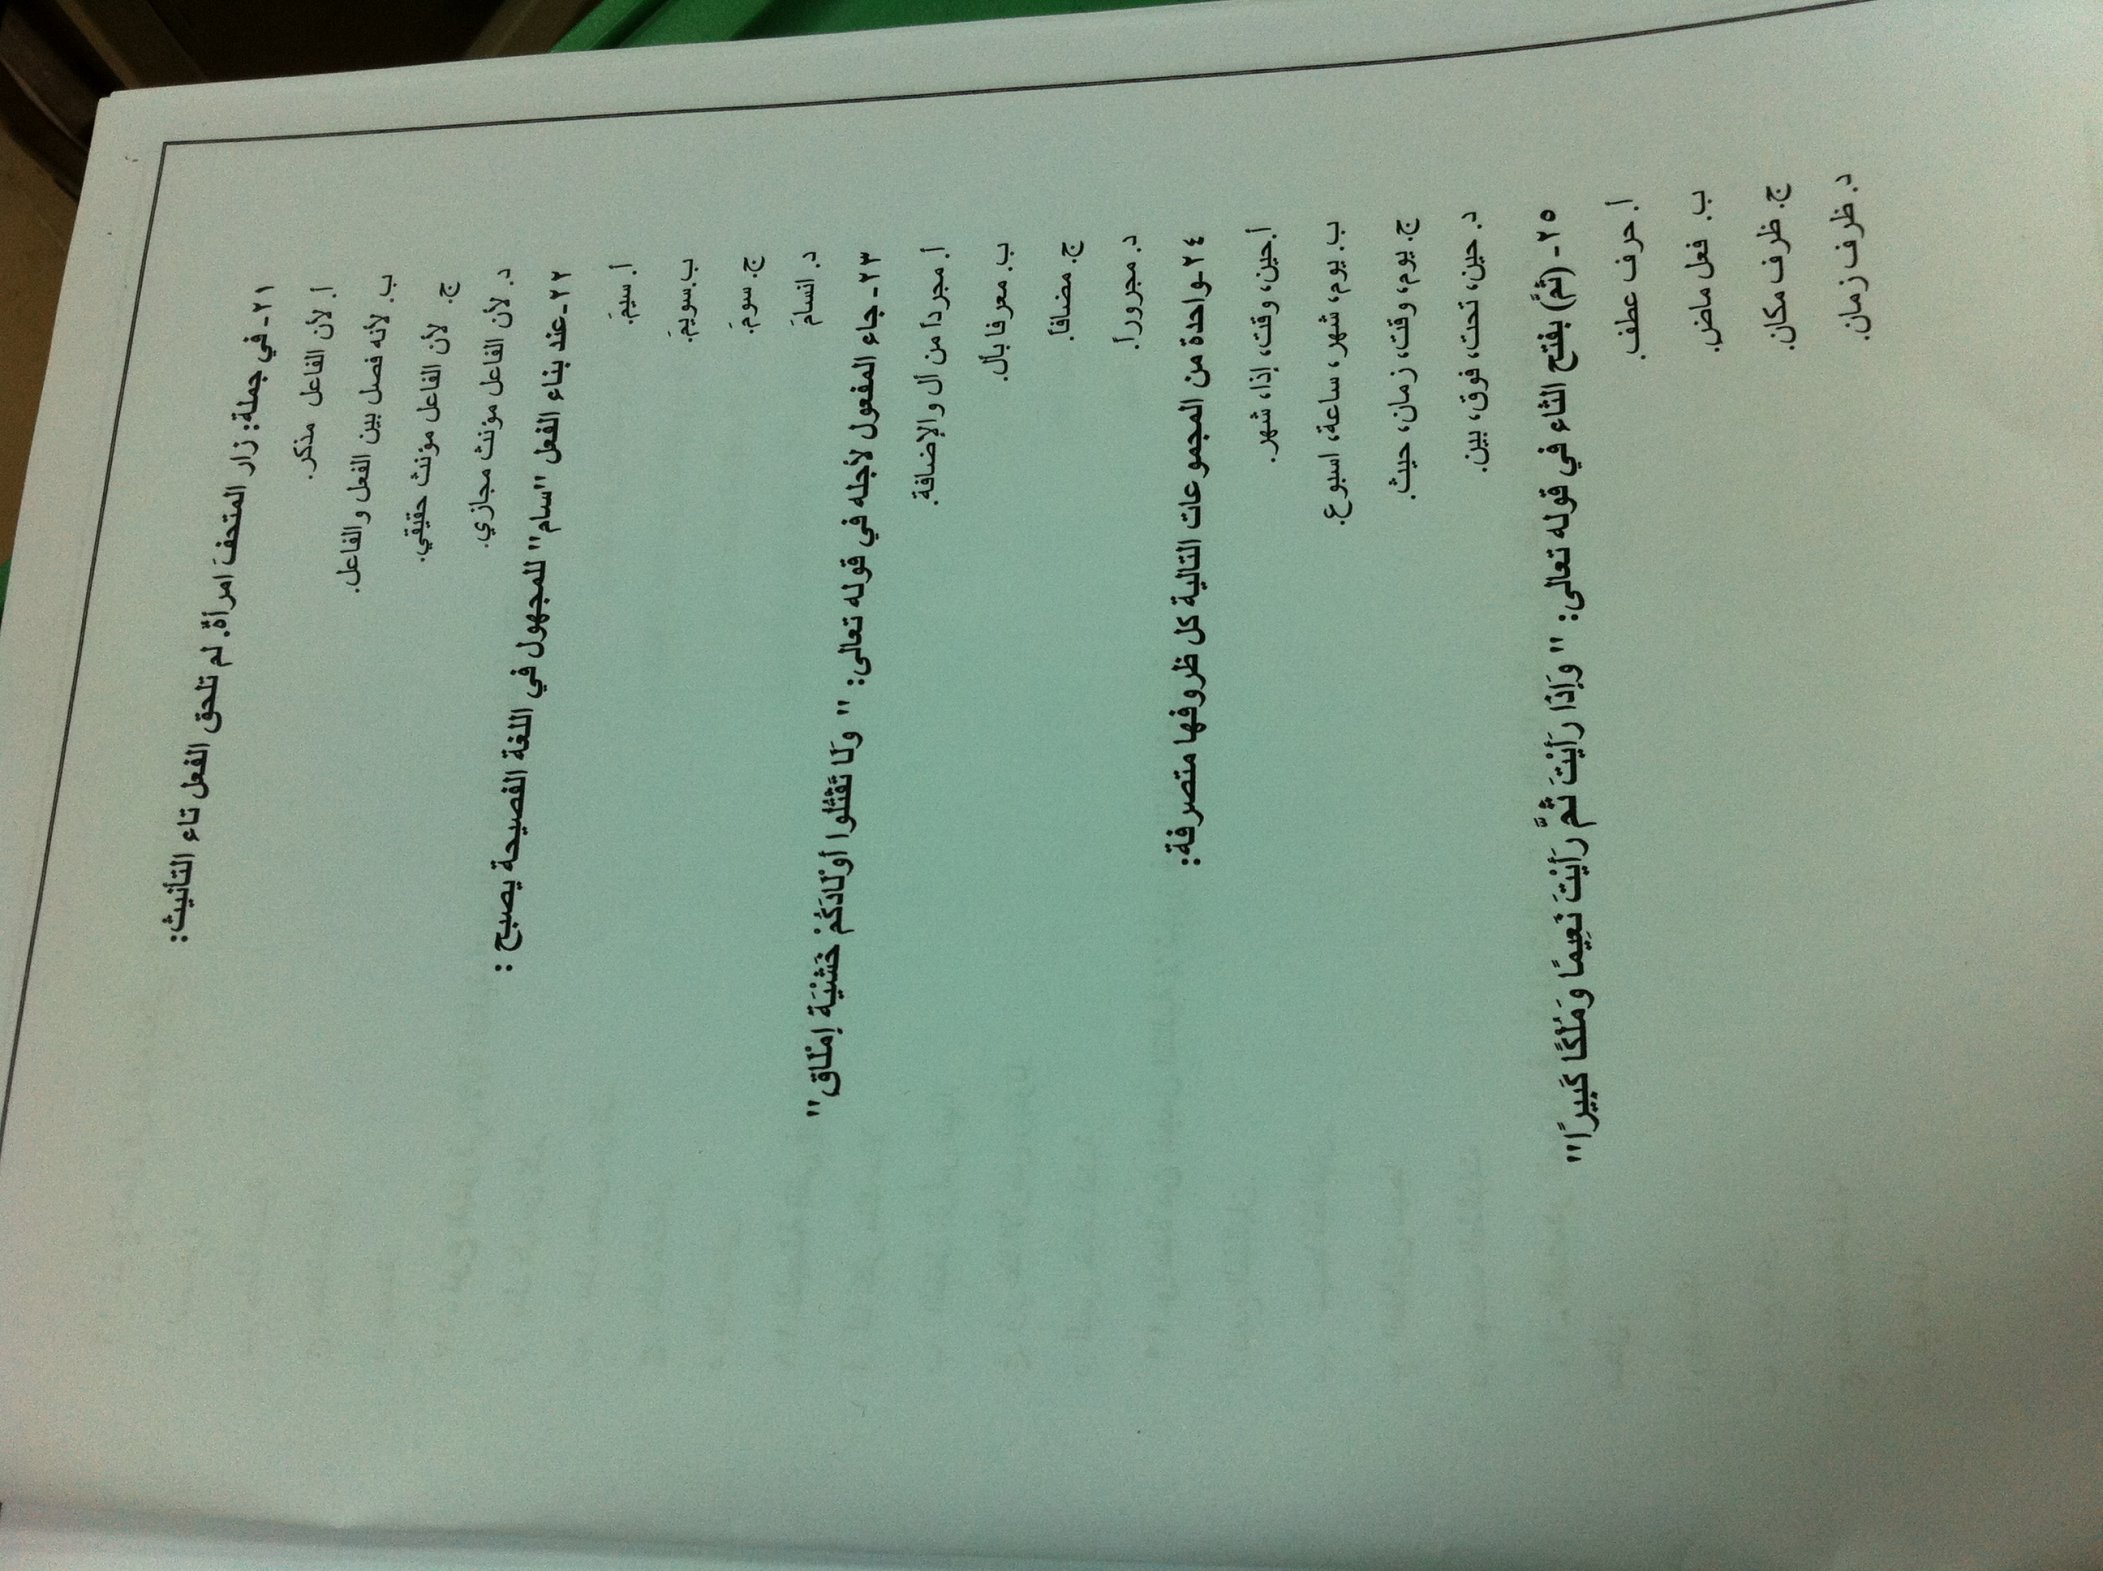 ٢١- في جملة: زار المتحفَ امرأةٌ. لم تلحق الفعل تاء التأنيث:
أ. لأن الفاعل مذكر.
ب. لأنه فصل بين الفعل والفاعل.
ج. لأن الفاعل مؤنث حقيقي.
د. لأن الفاعل مؤنث مجازي.
٢٢-عند بناء الفعل "سام" للمجهول في اللغة الفصيحة يصبح :
أ. سيمَ.
ب.سويمَ.
ج. سومَ.
د. انسامَ
٢٣- جاء المفعول لأجله في قوله تعالى: " وَلَا تَقْتُلُوا أَوْلَادَكُمْ خَشْيَةَ إِمْلَاقٍ"
أ. مجرداً من ال والإضافة.
ب. معرفا بأل.
ج. مضافاً.
د. مجروراً.
٢٤-واحدة من المجموعات التالية كل ظروفها متصرفة:
أ.حين، وقت، إذا، شهر.
ب. يوم، شهر، ساعة، اسبوع.
ج. يوم، وقت، زمان، حيث.
د. حين، تحت، فوق، بين.
٢٥- (ثَمَّ) بفتح الثاء في قوله تعالى: " وَإِذَا رَأَيْتَ ثَمَّ رَأَيْتَ نَعِيمًا وَمُلْكًا كَبِيرًا"
أ. حرف عطف.
ب. فعل ماض.
ج. ظرف مكان.
د. ظرف زمان.